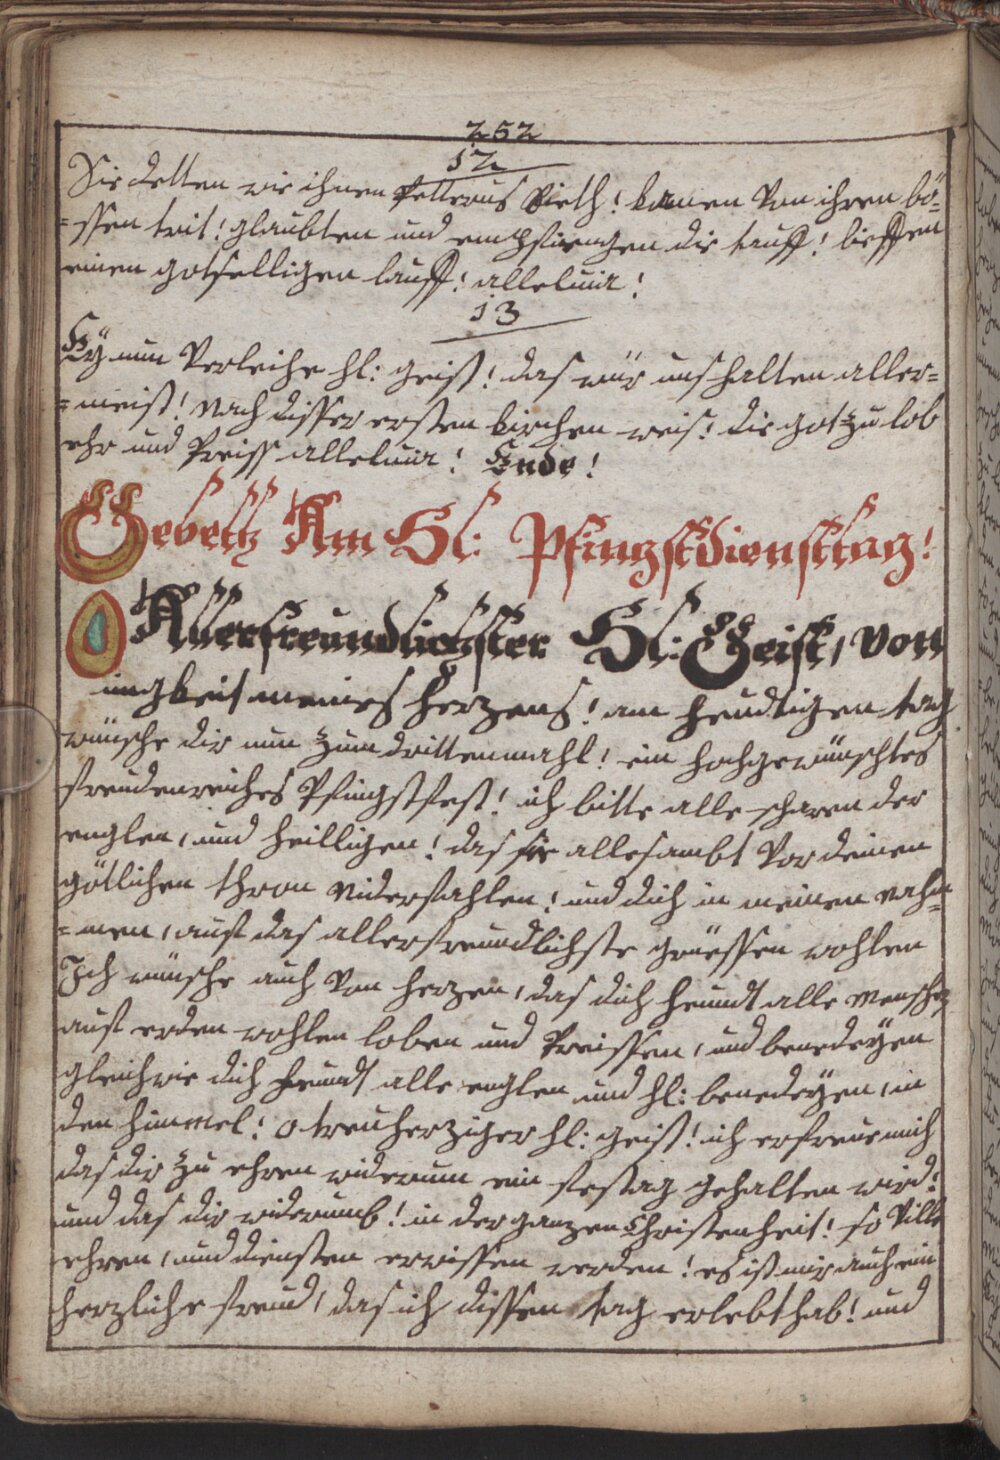 252
12
Sie detten wie ihnen Petterus Rieth! kamen von ihren bö-
-ssen trit! glaubten und empfiengen die tauff! lieffen
einen gotselligen lauff! alleluia!
13
Ey nun verleihe hl: geist! das wür uns halten aller=
=meist! nach disser ersten kirchen weis! die got zu lob
ehr und Preiss alleluia! Ende!
Gebett Am Hl: Pfingstdiensttag!
O Allerfreundlichster Hl: Geist, von
ingkeit meines herzens! am heudtigen tag
wünsche dir nun zum drittenmahl! ein hochgewünschtes
freudenreiches Pfingstfest! ich bitte alle scharen der
englen, und heilligen! das sie allesambt vor deinen
götlichen thron niderfahlen! und dich in meinen nah=
=men, auf das allerfreundlichste grüessen wohlen
Ich wünsche auch von herzen, das dich heundt alle menschen
auf erden wohlen loben und Preissen, und benedeyen
gleich wie dich heundt alle englen und hl: benedeyen, in
den himmel! O treuherziger hl: geist! ich erfreue mich
das dir zu ehren widerum ein festag gehalten wird!
und das dir widerumb! in der ganzen Christenheit! so ville
ehren, und diensten erwissen werden! es ist mir auch ein
herzliche freud, das ich dissen tag erlebt hab! und